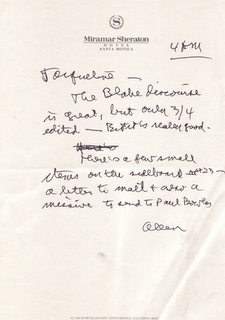 Miramar Sheraton
HOTEL
SANTA MONICA
4 AM
Jacqueline —
The Blake discourse
is great, but only 3/4
edited — But it's really good.
There's a few small
items on the
a letter to mail & also a
missive to send to Paul Bowles
Allen